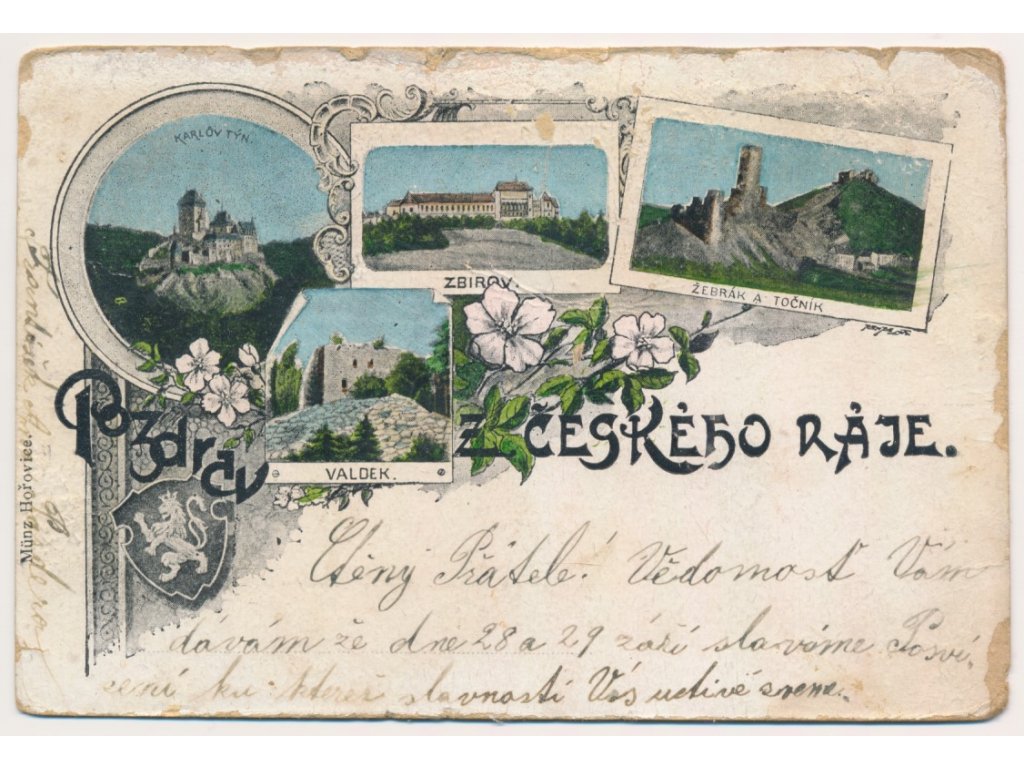 KARLŮV TÝN.
ZBIROV.
ŽEBRÁK A TOČNÍK
VALDEK.
Pozdrav z ČESKÉHO RÁJE.
Münz Hořovice.
Ctěný Přátelé! Vědomosť Vám
dávám že dne 28 a 29 září slavíme Posví-
cení ku kteréž slavnosti Vás uctivě zveme.